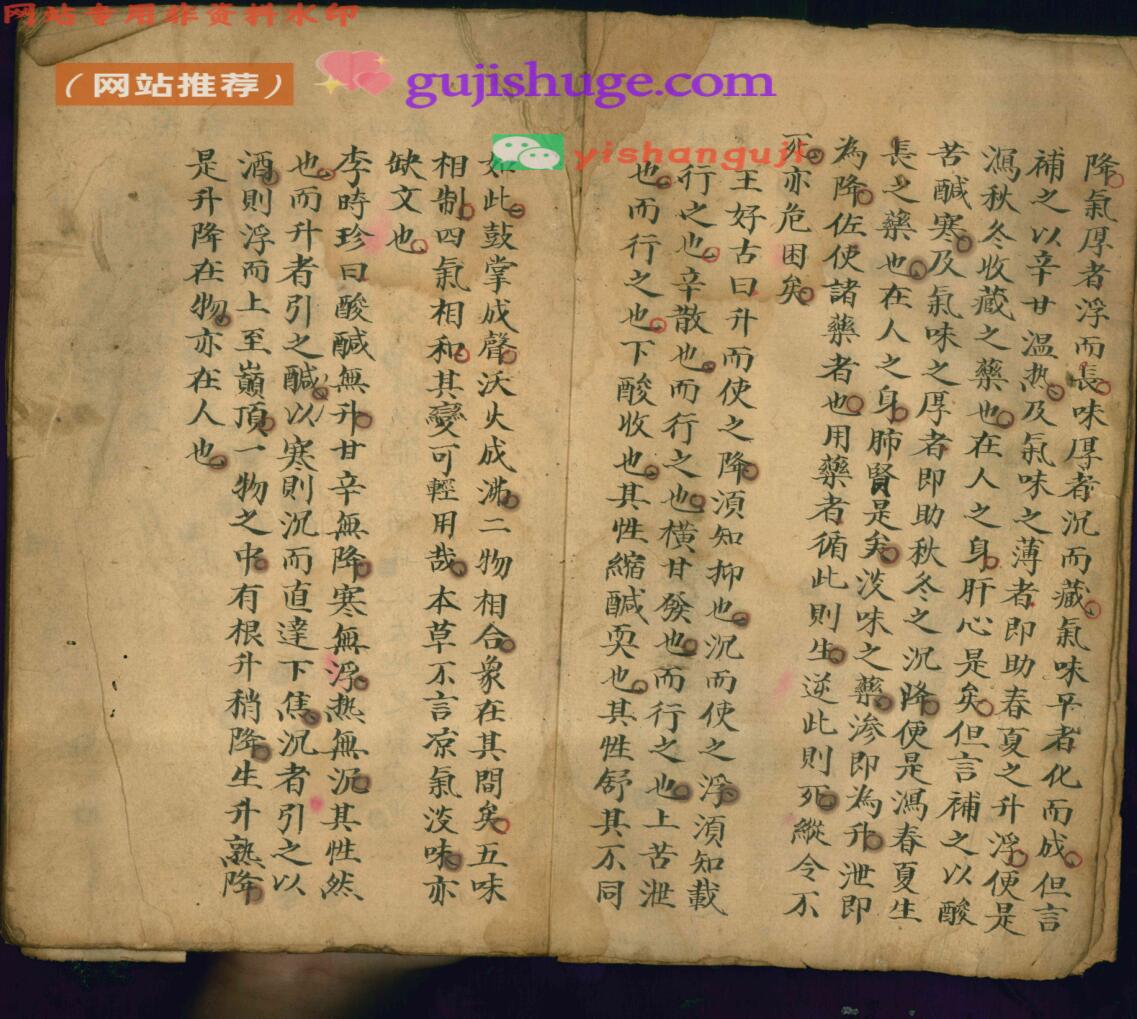 网站专用非资料水印
（网站推荐）
gujishuge.com
yishanguji
降氣厚者浮而長味厚者沉而藏氣味平者化而成但言
補之以辛甘温热及氣味之薄者即助春夏之升浮便是
瀉秋冬收藏之藥也在人之身肝心是矣但言補之以酸
苦鹹寒及氣味之厚者即助秋冬之沉降便是瀉春夏生
長之藥也在人之身肺賢是矣淡味之藥滲即為升泄即
為降佐使諸藥者也用藥者循此則生逆此則死縱令不
死亦危困矣
王好古曰升而使之降須知抑也沉而使之浮須知載
也辛散也而行之也橫甘發也而行之也上苦泄
也而行之也下酸收也其性縮鹹耎也其性舒其不同
如此鼓掌成聲沃火成沸二物相合象在其間矣五味
相制四氣相和其變可輕用哉本草不言凉氣淡味亦
缺文也
李時珍曰酸鹹無升甘辛無降寒無浮热無沉其性然
也而升者引之鹹以寒則沉而直達下焦沉者引之以
酒則浮而上至巔頂一物之中有根升稍降生升熟降
是升降在物亦在人也